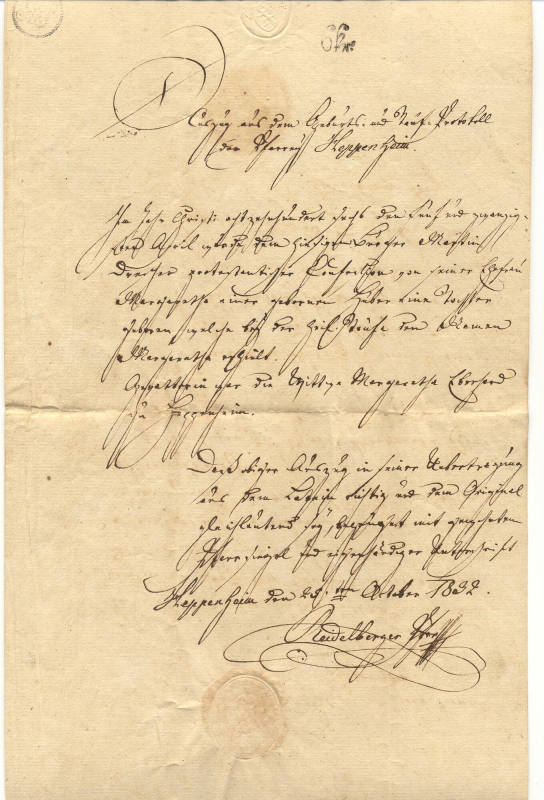 6 kr.
Auszug aus dem Geburts- und Tauf-Protokoll
der Pfarrey Heppenheim
Im Jahr Christi achtzehnhundert sechs den fünf und zwanzig-
sten April wurde dem hiesigen Bürger Martin
protestantischer Confession, von seiner Ehefrau
Margaretha einer gebornen Huber eine Tochter
geboren welche bei der heil. Taufe den Namen
Margaretha erhielt.
Gevatterin war die Wittwe Margaretha Eberhard
zu Heppenheim.
Daß obiger Auszug in seiner Uebertragung
aus dem Latein richtig und dem Original
gleichlautend sey, bezeuget mit
Pfarrsiegel und eigenhändiger Unterschrift
Heppenheim den 25ten October 1832.
Reidelberger Pfarrer